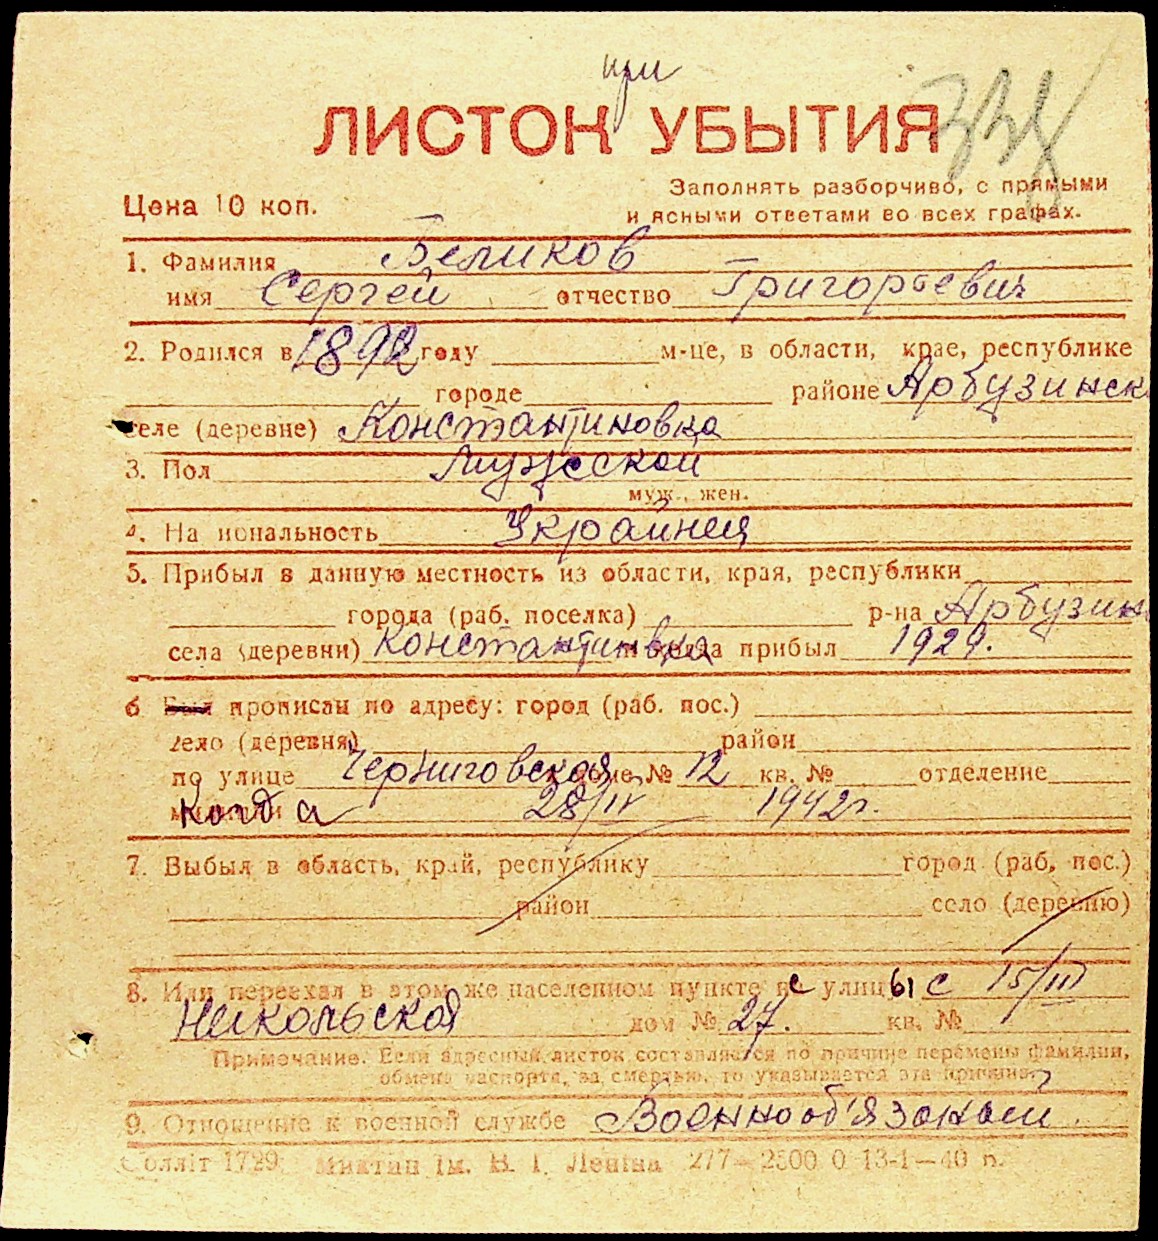 при
ЛИСТОК УБЫТИЯ
Цена 10 коп.
Заполнять разборчиво, с прямыми
и ясными ответами во всех графах.
1. Фамилия Беликов
имя Сергей отчество Григорьевич
2. Родился в 1892 году м-це, в области, крае, республике
городе районе Арбузинск
селе (деревне) Константиновка
3. Пол Мужеской
муж., жен.
4. На иональность Украйнец
5. Прибыл в данную местность из области, края, республики
города (раб. поселка) р-на Арбузин
села (деревни) Константиновка когда прибыл 1929.
6 Был прописан по адресу: город (раб. пос.)
село (деревня) район
по улице Черниговская доме № 12 кв. № отделение
Когда 28/IV 1942г.
7. Выбыл в область, край, республику город (раб. пос.)
район село (деревню)
8. Или переехал в этом же населенном пункте с улицы с 15/III
Никольской дом № 27. кв. №
Примечание. Если адресный листок составляется по причине перемены фамилии,
обмена паспорта, за смертью, то указывается эта причина.
9. Отношение к военной службе Военнооб'язаной
Солліт 1729. Миктип ім. В. І. Леніна 277—2500 0 13-1—40 р.